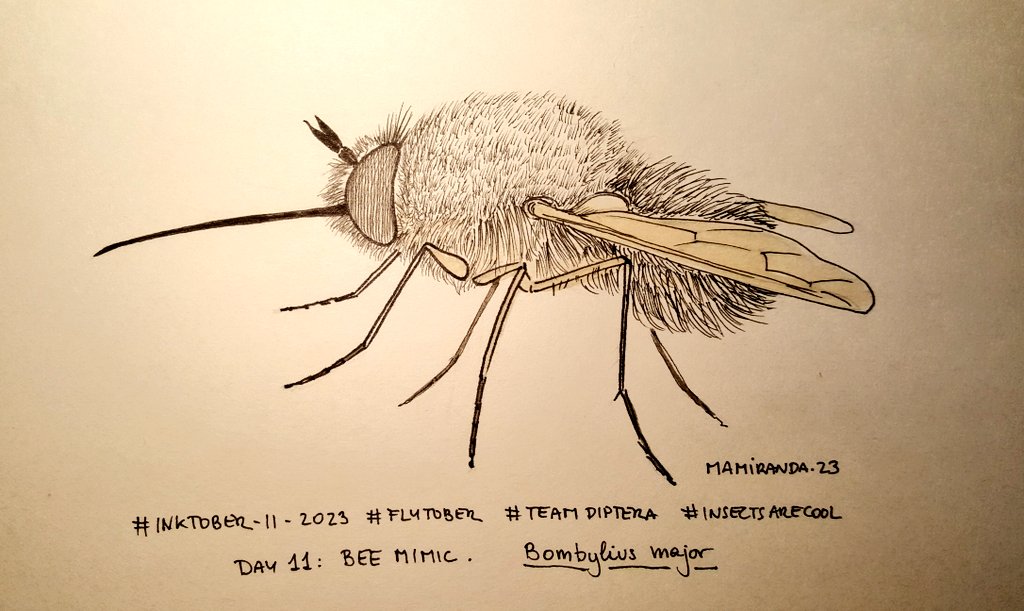 MAMIRANDA.23
#INKTOBER-11-2023 #FLYTOBER #TEAMDIPTERA #INSECTSARECOOL
DAY 11: BEE MIMIC. Bombylius major